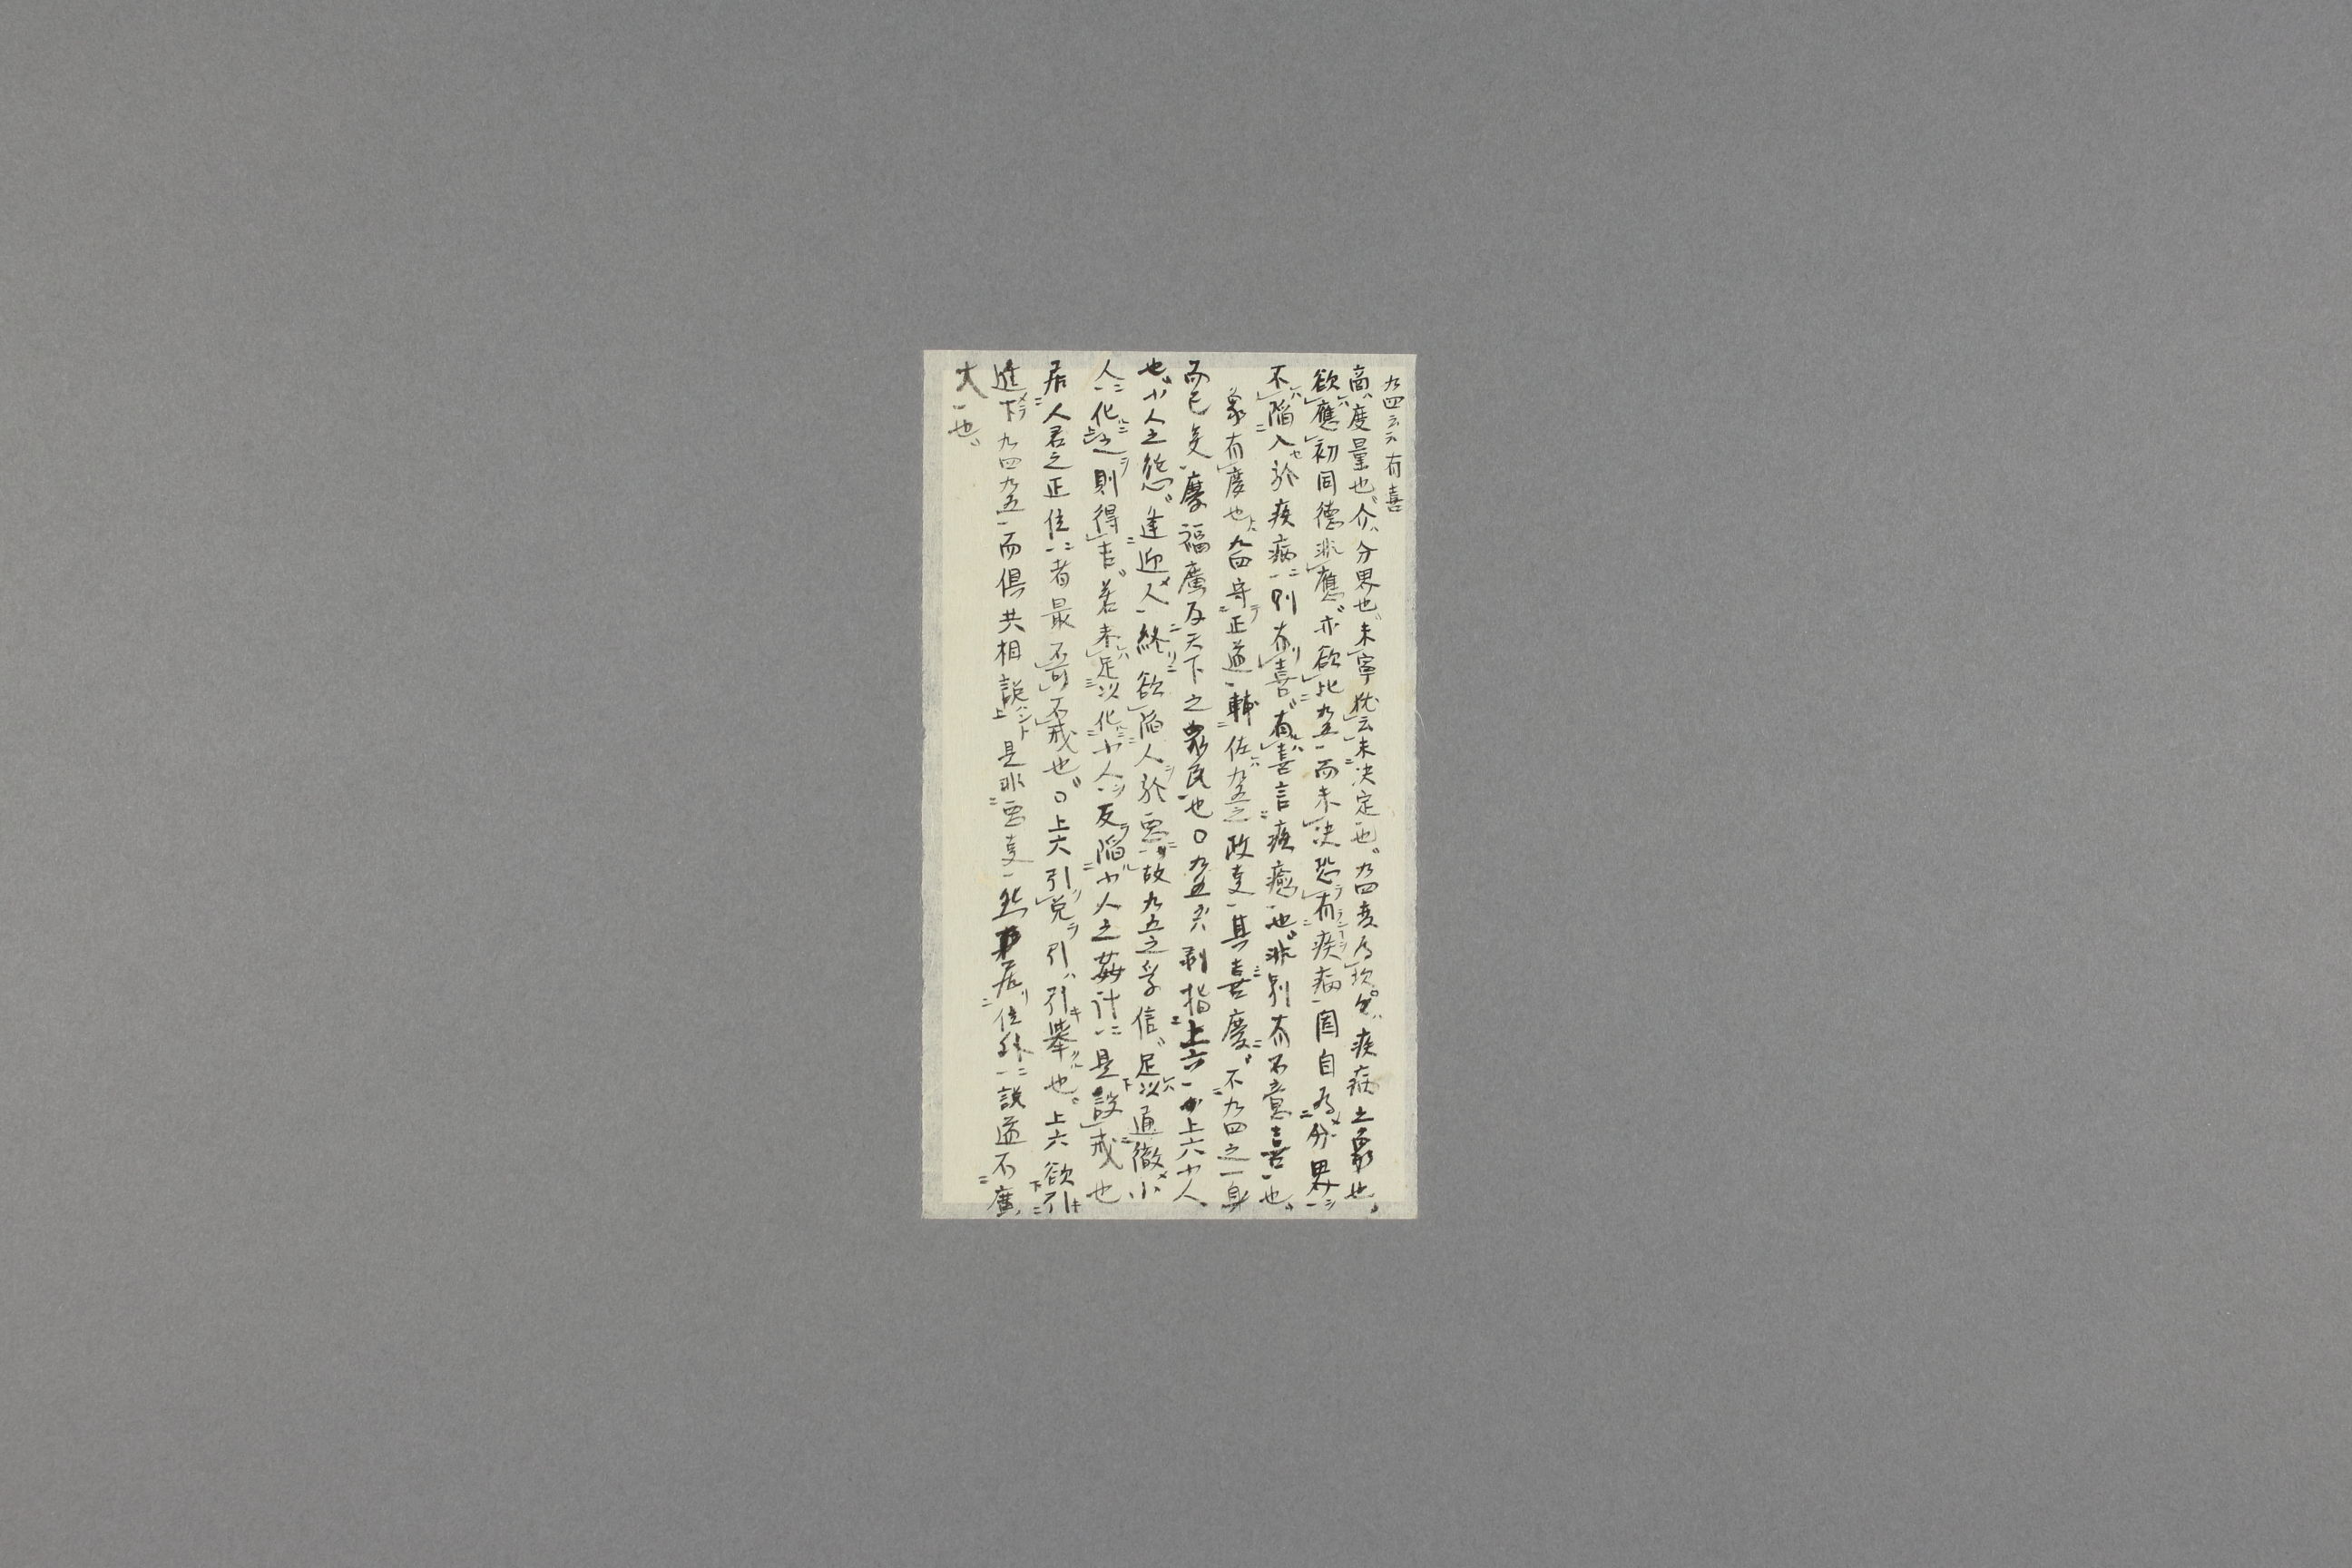 九四云云有喜
商度量也介分界也未寧猶云未決定也九四変為坎坎疾病之象也
欲應初同德非應亦欲比九五而未決恐有疾病固自為分界
不陷入於疾病則有喜有喜言疾癒也非別有不意喜也
象有慶也九四守正道輔佐九五之政事其喜慶不九四之一身
而已矣慶福廣及天下之衆民也〇九五云云剥指上六上六小人
也小人之態逢迎人終欲陷人於悪故九五之孚信足以通徹小
人化之則得吉若未足以化小人反陷小人之姦計是設戒也
居人君之正位者最不可不戒也〇上六引兌引引舉也上六欲引
進九四九五而俱共相説是非悪事然居位外説道不廣
大也